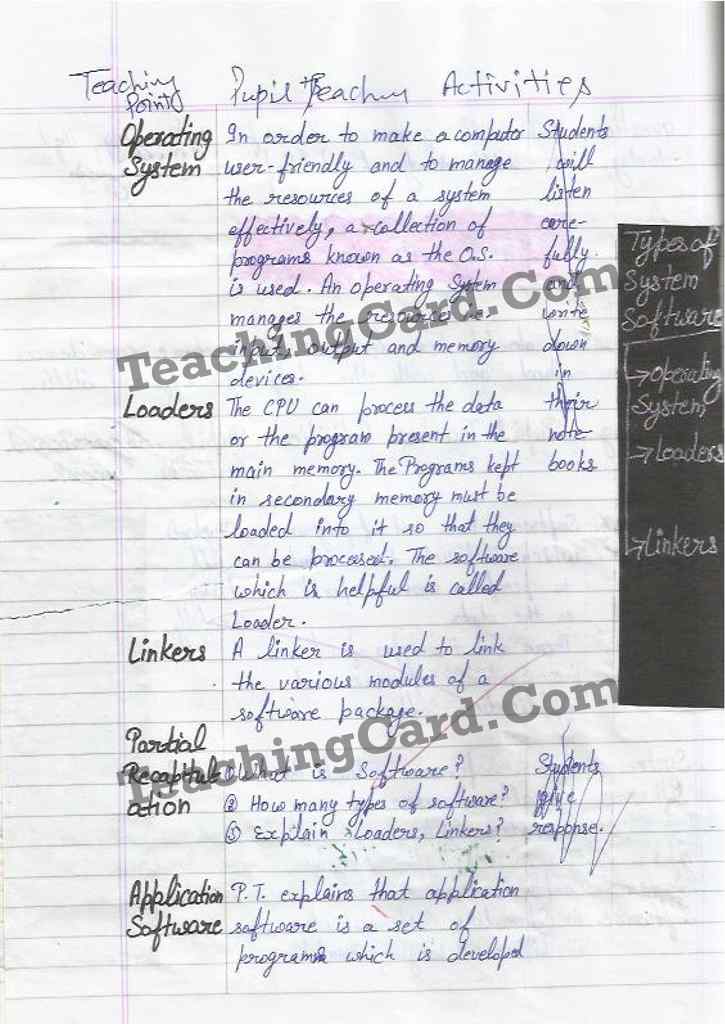 Teaching Point Pupil Teacher Activities
Operating System
In order to make a computor
user-friendly and to manage
the resources of a system
effectively, a collection of
programs known as the O.S.
is used. An operating System
manages the resources i.e.
input, output and memory
devices.
Students
will
listen
care-
fully
and
write
down
in
their
note
books
Types of
System
Software
→ Operating
System
→ Loaders
→ Linkers
Loaders
The CPU can process the data
or the program present in the
main memory. The Programs kept
in secondary memory must be
loaded into it so that they
can be processed. The software
which is helpful is called
Loader.
Linkers
A linker is used to link
the various modules of a
software package.
Partial
Recapitul
ation
① What is Software?
② How many types of software?
③ Explain Loaders, Linkers?
Students
give
response.
Application
Software
P.T. explains that application
software is a set of
programs which is developed
TeachingCard.Com
TeachingCard.Com